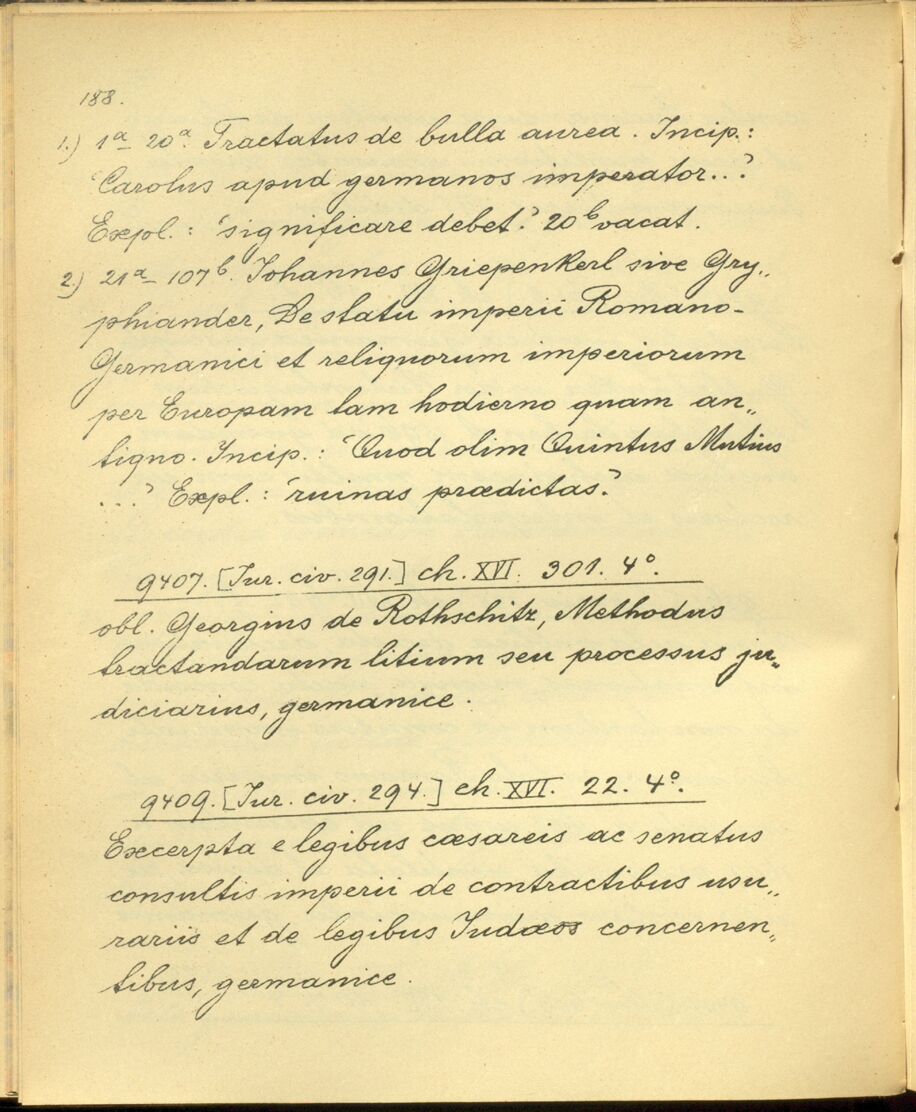 188.
1.) 1a – 20a. Tractatus de bulla aurea. Incip.:
'Carolus apud germanos imperator...'
Expl.: 'significare debet.' 20b vacat.
2.) 21a – 107b. Iohannes Griepenkerl sive Gry„
phiander, De statu imperii Romano-
Germanici et reliquorum imperiorum
per Europam tam hodierno quam an„
tiquo. Incip.: 'Quod olim Quintus Mutius
...' Expl.: 'ruinas prædictas.'
9407. [Iur. civ. 291.] ch. XVI. 301. 4°.
obl. Georgius de Rothschitz, Methodus
tractandarum litium seu processus ju„
diciarius, germanice.
9409. [Iur. civ. 294.] ch. XVI. 22. 4°.
Excerpta e legibus cæsareis ac senatus
consultis imperii de contractibus usu„
rariis et de legibus Iudæos concernen„
tibus, germanice.